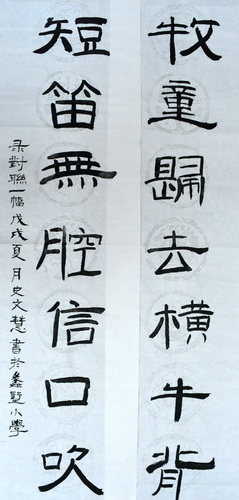 牧童歸去橫牛背
短笛無腔信口吹
录對聯一幅戊戌夏月史文慧書於鑫野小學